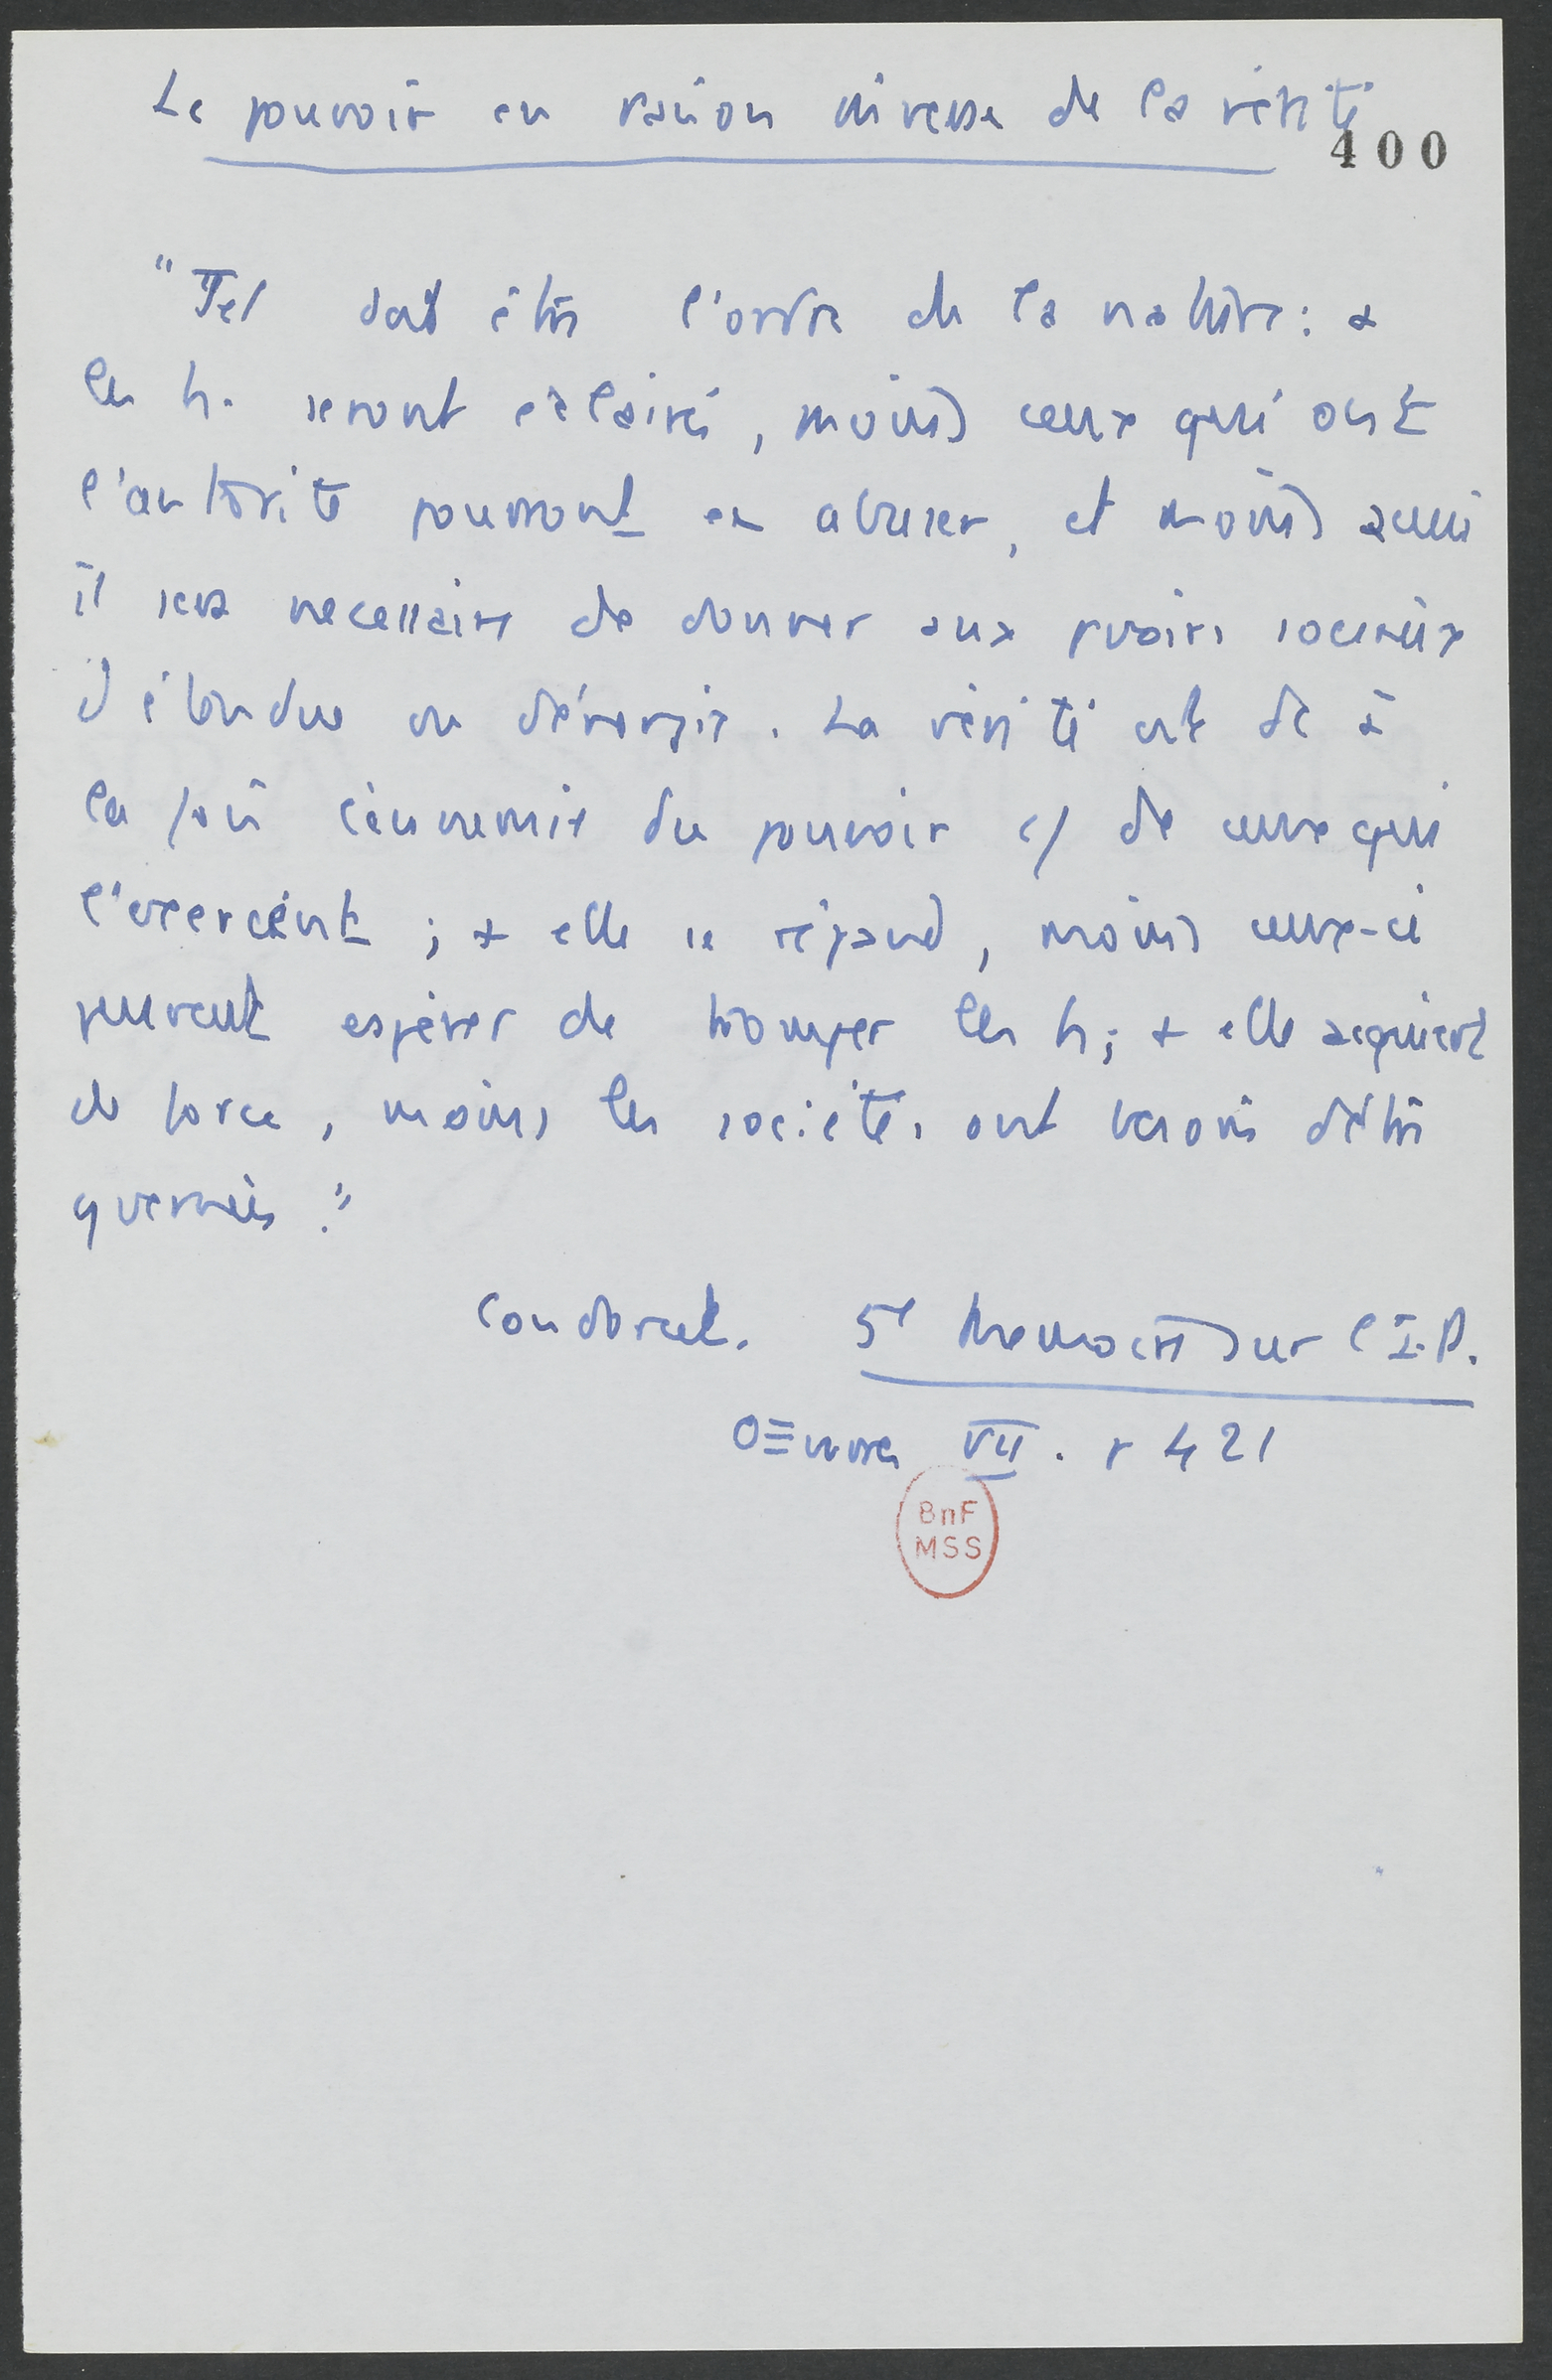 Le pouvoir en raison inverse de la vérité
400
"Tel doit être l'ordre de la nature : +
les h. seront éclairés, moins ceux qui ont
l'autorité pourront en abuser, et moins aussi
il sera necessaire de donner aux pvoirs sociaux
d'étendue ou d'énergie. La vérité est dc à
la fois l'ennemie du pouvoir c/ de ceux qui
l'exercent ; + elle se répand, moins ceux-ci
peuvent espérer de tromper les h ; + elle acquiert
de force, moins les sociétés ont besoin d'être
gvernées."
Condorcet. 5e Memoire sur l'I.P.
Œuvres VII. p 421
BnF
MSS